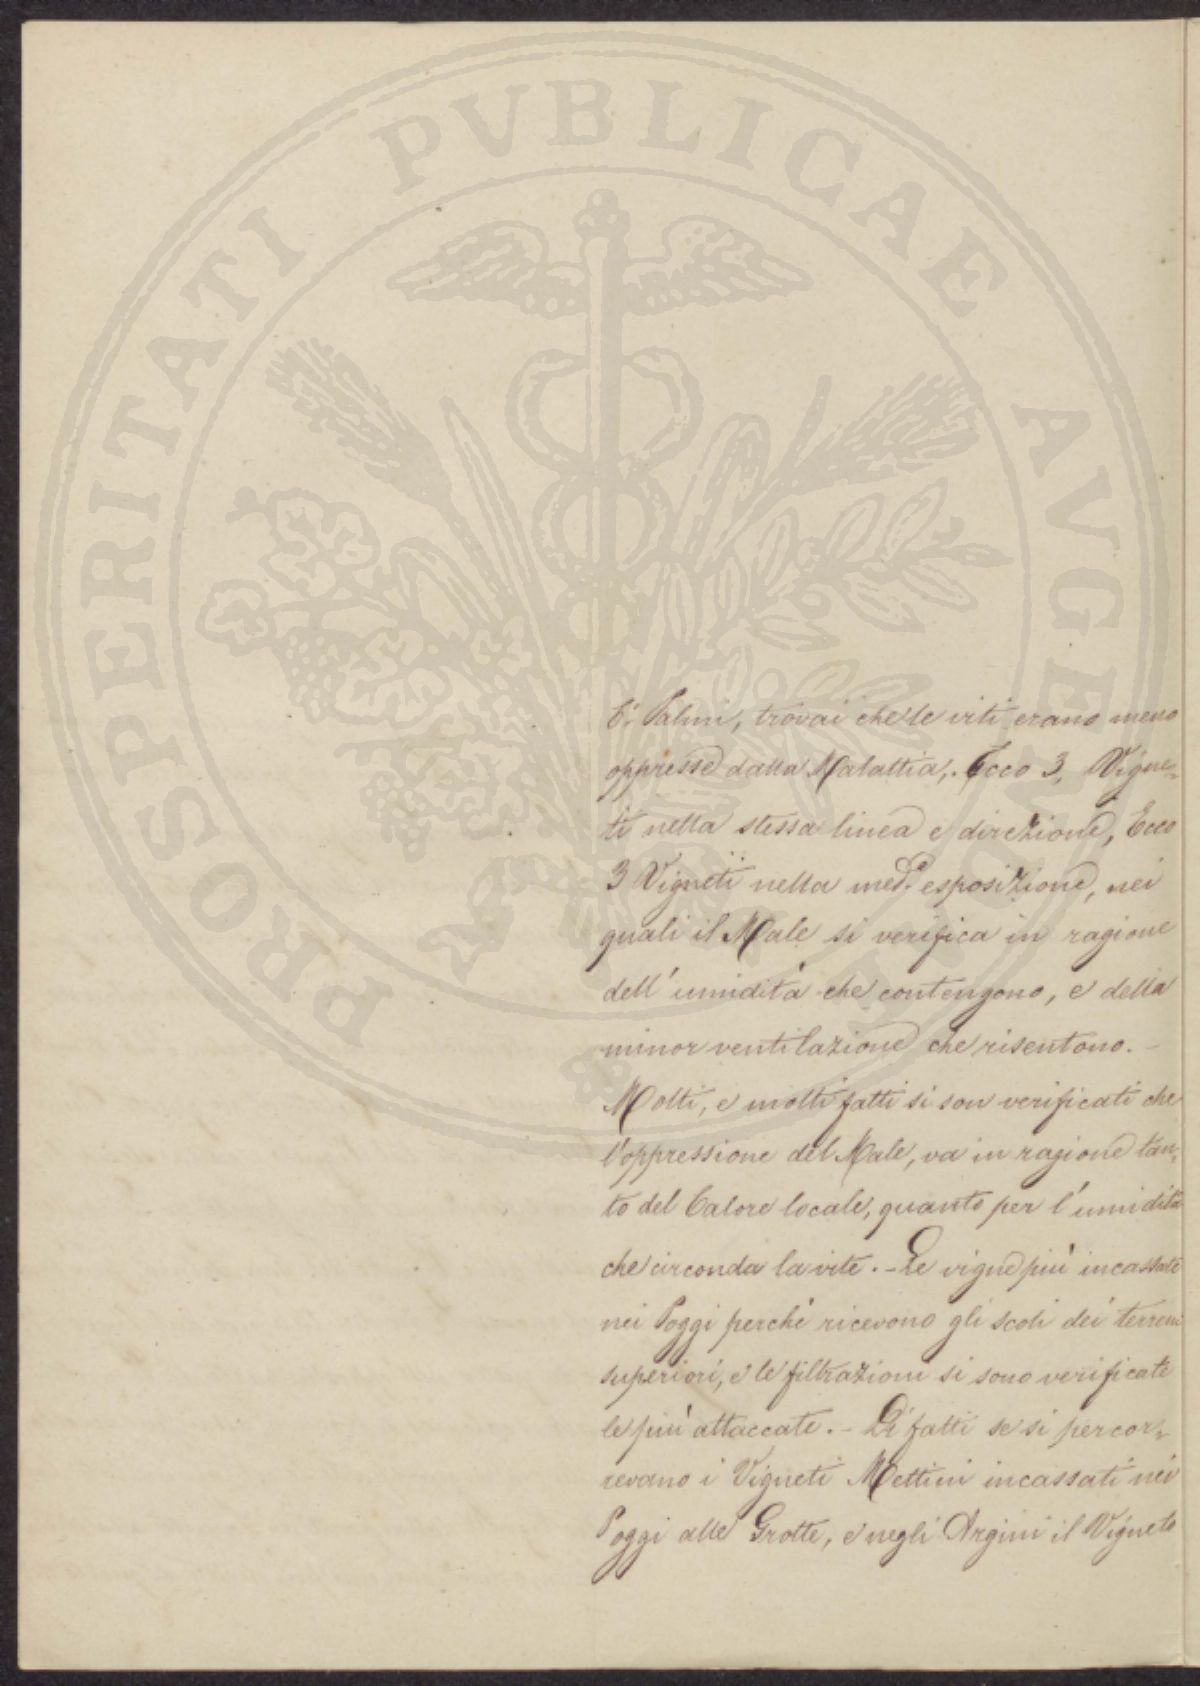 PROSPERITATI PUBLICAE AUGENDAE
Palmi, trovai che le viti erano meno
oppresse dalla Malattia,. Ecco 3, Vigne-
ti nella stessa linea e direzione, Ecco
3 Vigneti nella med.ª esposizione, nei
quali il Male si verifica in ragione
dell'umidità che contengono, e della
minor ventilazione che risentono. –
Molti, e molti fatti si son verificati che
l'oppressione del Male, va in ragione tan-
to del Calore locale, quanto per l'umidità
che circonda la vite. – Le vigne più incassate
nei Poggi perchè ricevono gli scoli dei terreni
superiori, e le filtrazioni si sono verificate
le più attaccate. – Di fatti se si percor-
revano i Vigneti Mettini incassati nei
Poggi alle Grotte, e negli Argini il Vigneto